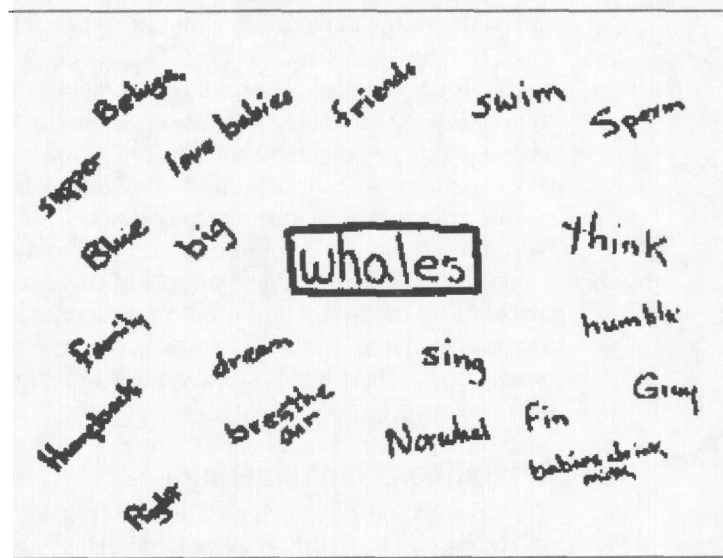 Beluga
love babies
friends
swim
Sperm
Blue
big
whales
think
humble
Family
dream
sing
Gray
Humpback
breathe
air
Narwhal
Fin
babies drink
milk
Right